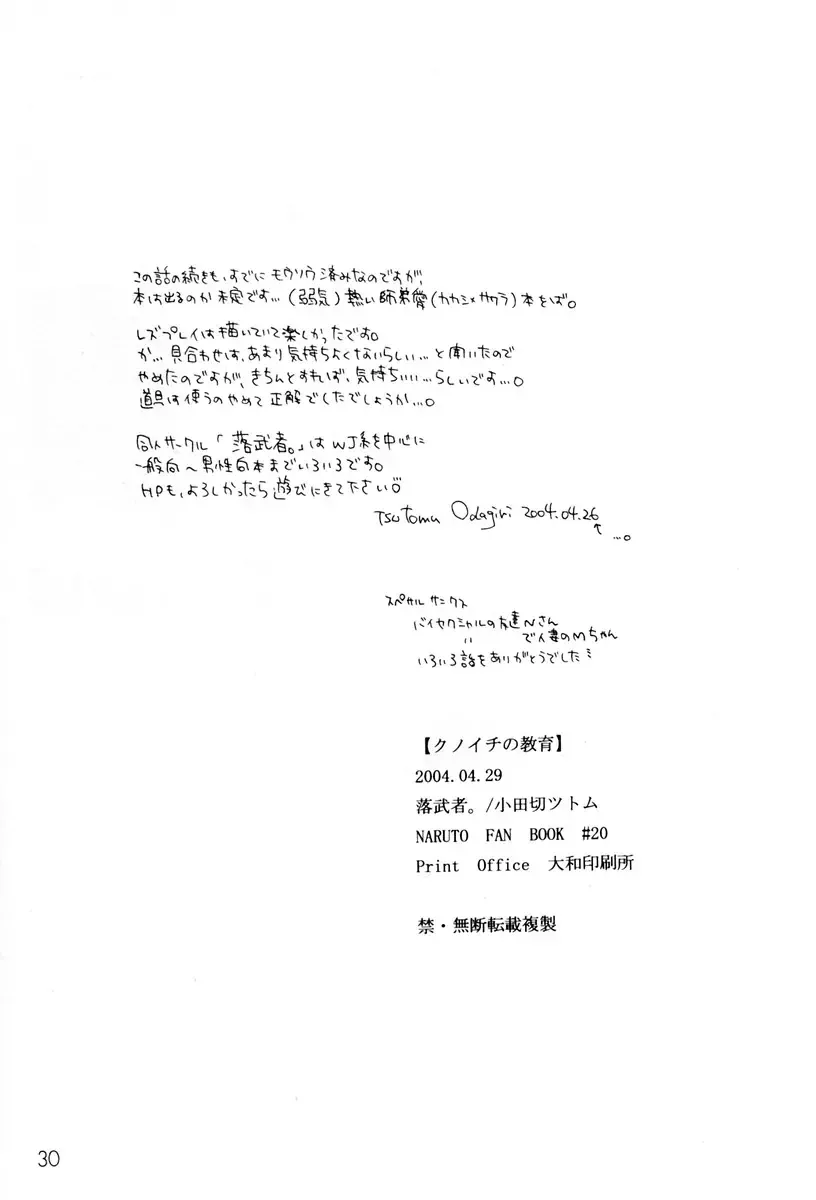 この話の続きも、すでにモウソウ済みなのですが、
本は出るのか未定です…(弱気)熱い師弟愛(カカシ×サクラ)本をば。
レズプレイは描いていて楽しかったです。
が…貝合わせは、あまり気持ちよくないらしい…と聞いたので
やめたのですが、きちんとすれば、気持ちいい…らしいです…。
道具は使うのやめて正解でしたでしょうか…。
同人サークル「落武者。」はWJ系を中心に
一般向〜男性向本までいろいろです。
HPも、よろしかったら遊びにきて下さい
Tsutomu Odagiri 2004.04.26
↑…。
スペサルサンクス
バイセクシャルの友達Nさん
〃 で人妻のMちゃん
いろいろ話をありがとうでした
【クノイチの教育】
2004.04.29
落武者。/小田切ツトム
NARUTO FAN BOOK #20
Print Office 大和印刷所
禁・無断転載複製
30